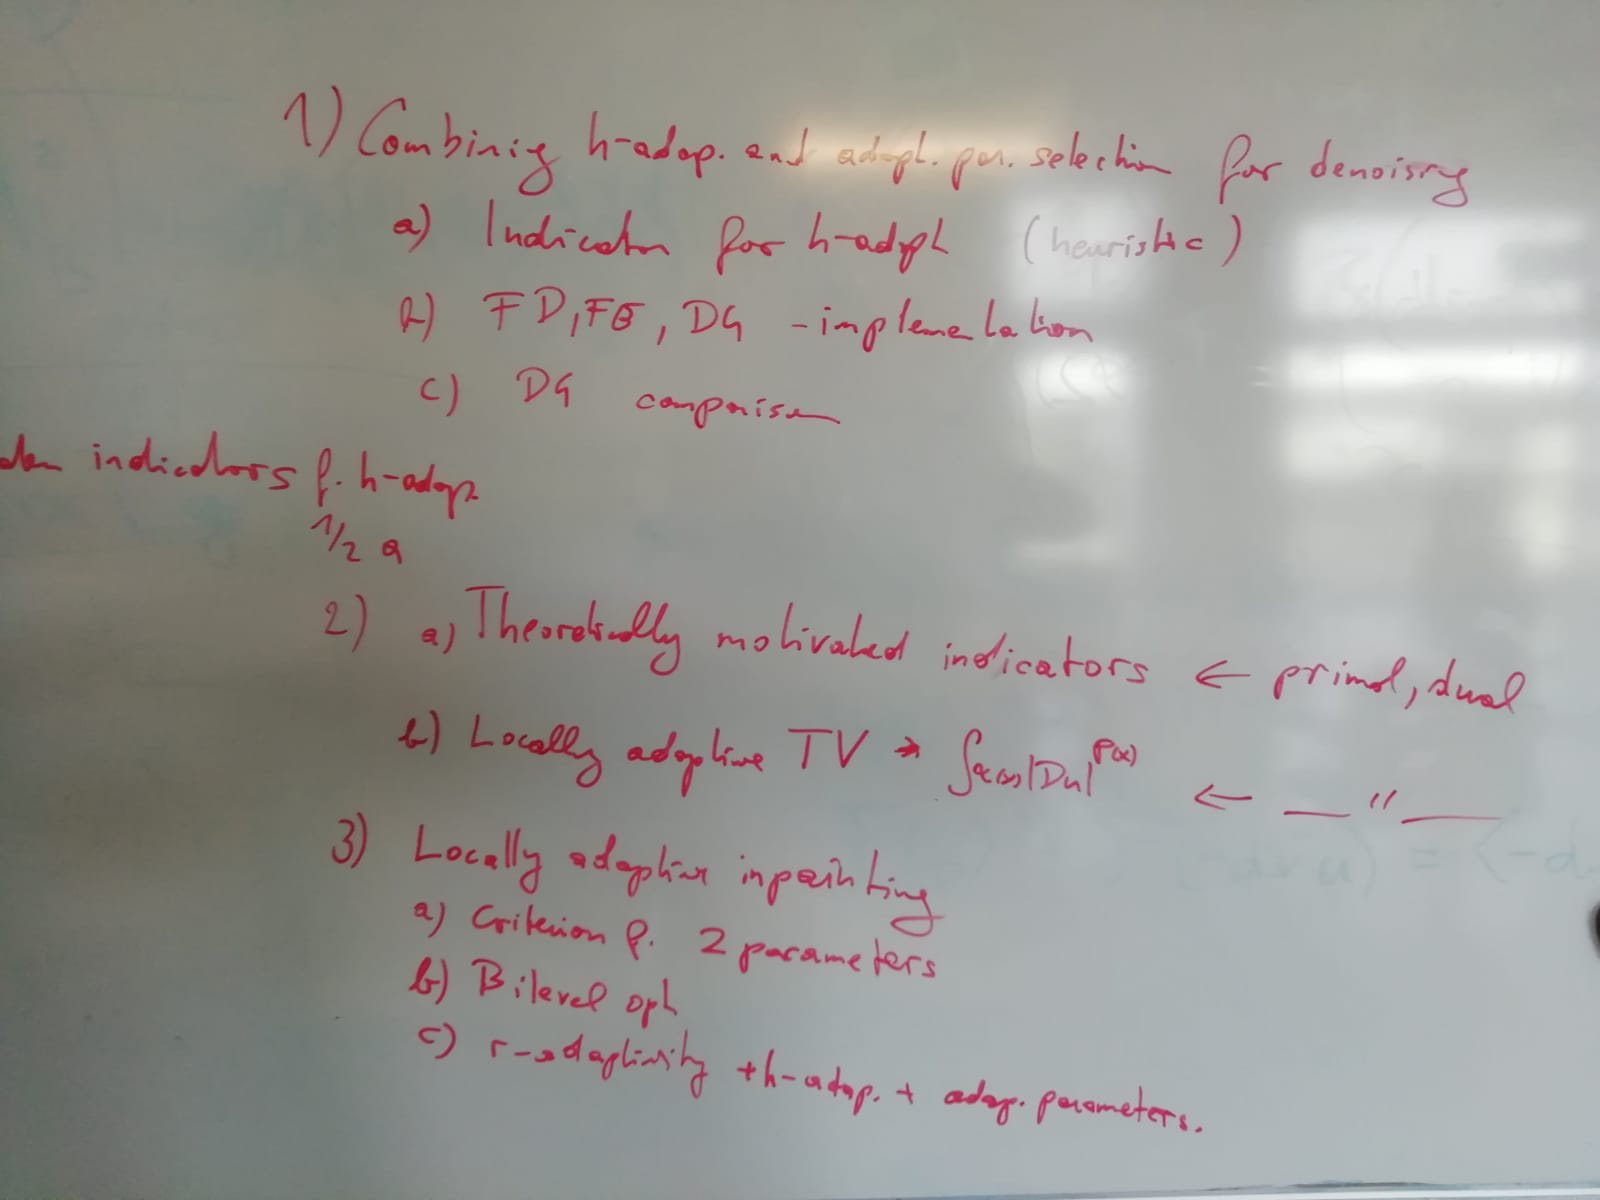 1) Combining h-adap. and adapt. par. selection for denoising
a) Indicator for h-adapt (heuristic)
b) FD, FE, DG - implementation
c) DG comparison
indicators f. h-adap.
1/2 a
2) a) Theoretically motivated indicators ← primal, dual
b) Locally adaptive TV → ∫α(x)|Du|^p(x) ← — " —
3) Locally adaptive inpainting
a) Criterion f. 2 parameters
b) Bilevel opt
c) r-adaptivity + h-adap. + adap. parameters.